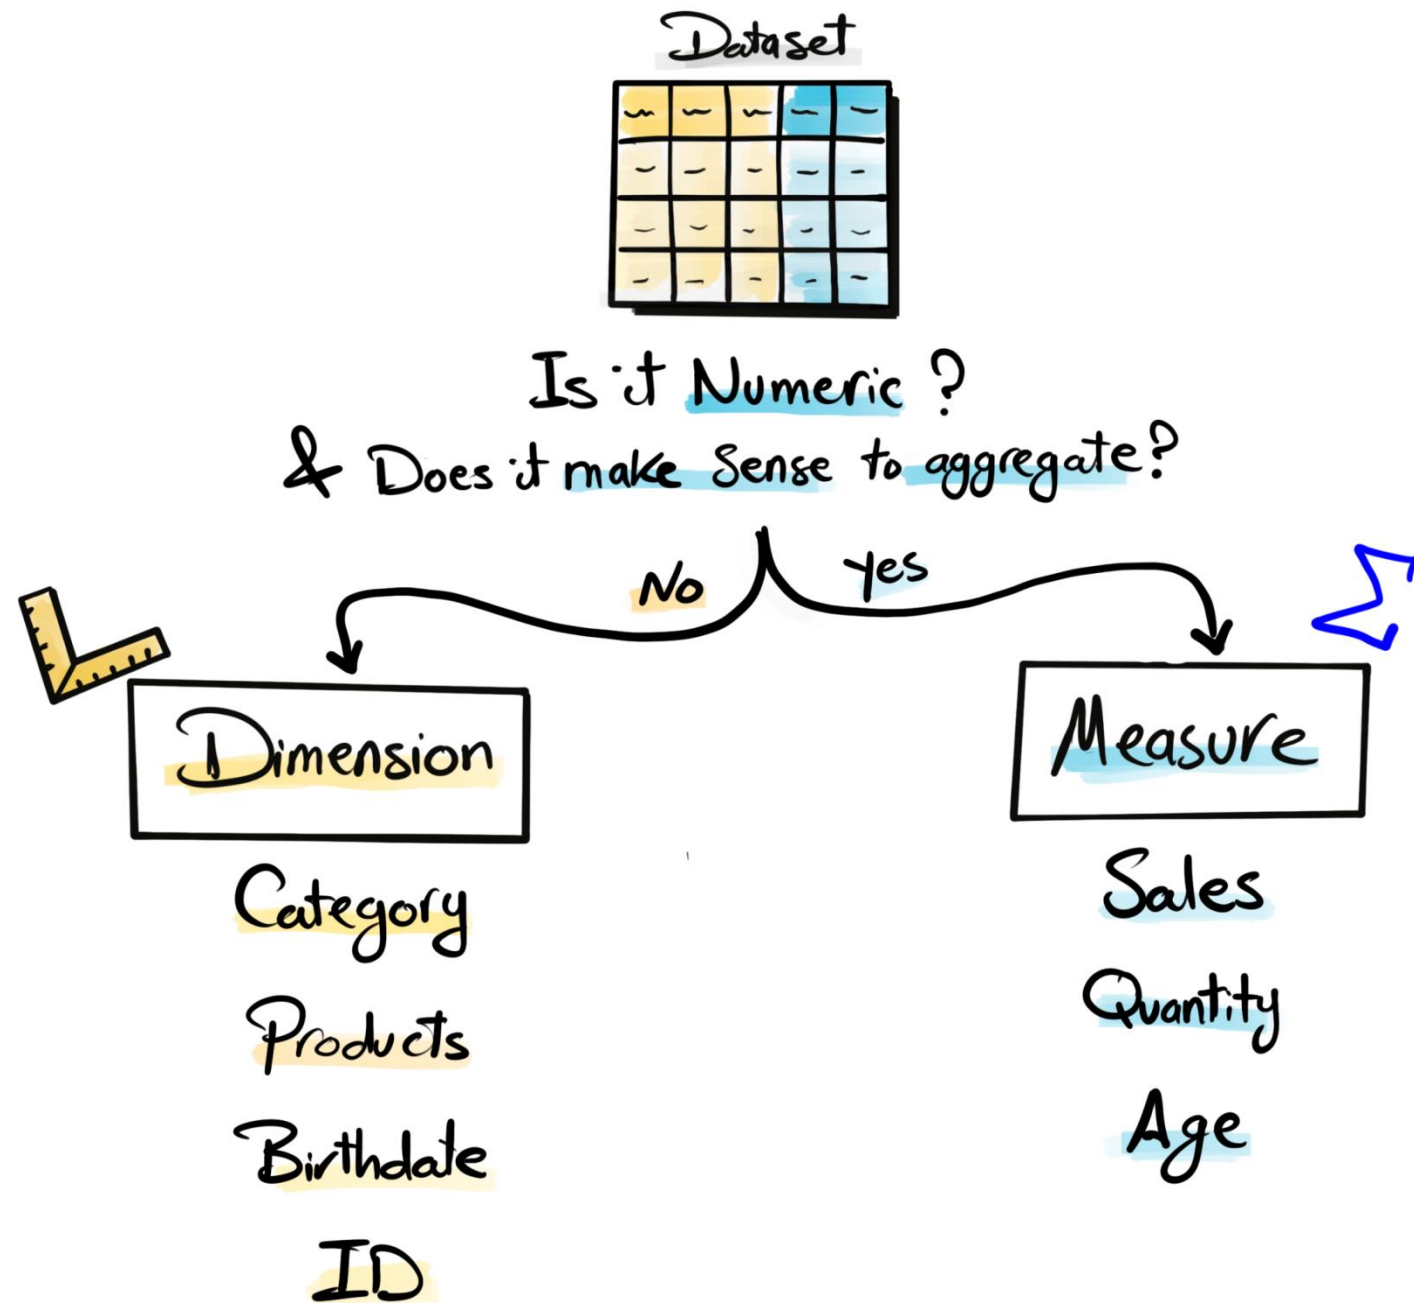 Dataset
Is it Numeric ?
& Does it make Sense to aggregate?
No
yes
Dimension
Measure
Category
Products
Birthdate
ID
Sales
Quantity
Age